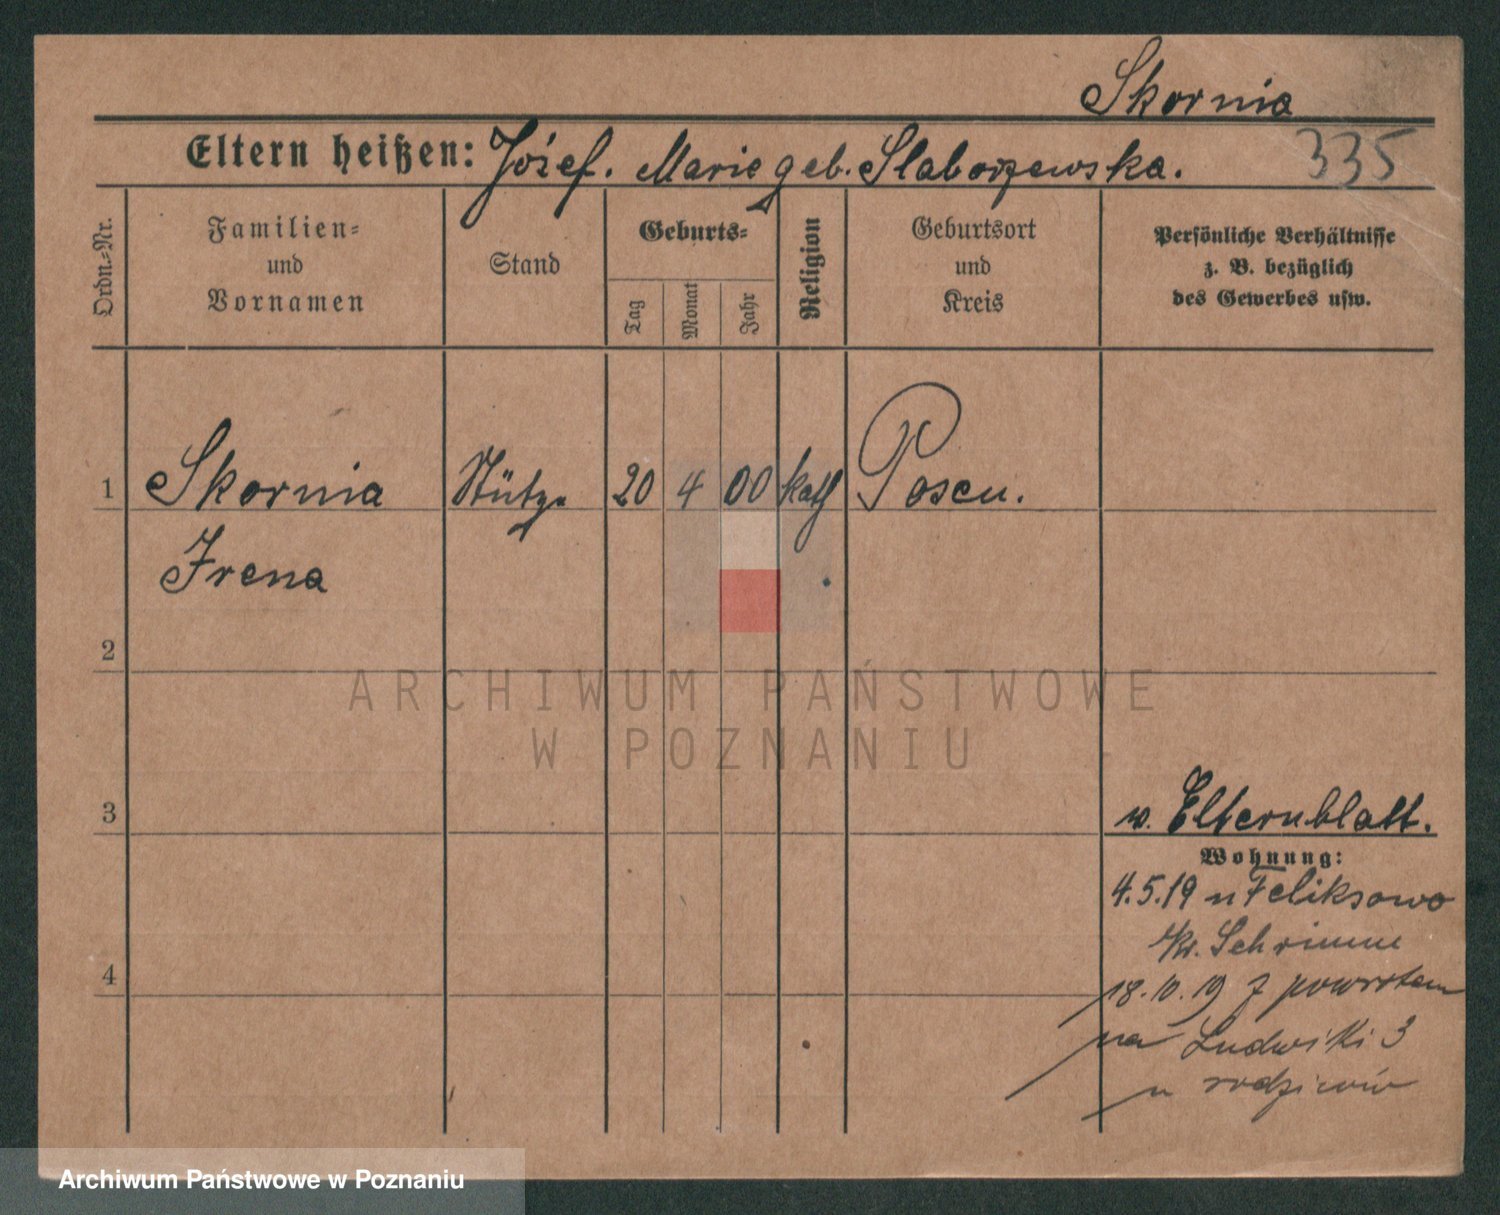 Skornia
Eltern heißen: Józef. Marie geb. Slaborzewska.
335
Ordn.-Nr.
Familien-
und
Vornamen
Stand
Geburts-
Tag
Monat
Jahr
Religion
Geburtsort
und
Kreis
Persönliche Verhältnisse
z. B. bezüglich
des Gewerbes usw.
1 Skornia Stütze 20 4 00 kath Posen.
Irena
2
ARCHIWUM PAŃSTWOWE
W POZNANIU
3
w. Elternblatt.
Wohnung:
4.5.19 n Feliksowo
Kr. Schrimm
4
18.10.19 z powrotem
na Ludwiki 3
u rodziców
Archiwum Państwowe w Poznaniu